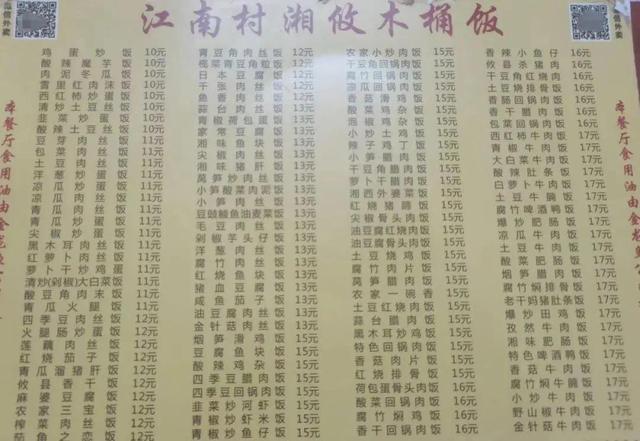 江南村湘攸木桶饭
微信外卖
本餐厅食用油由金龙鱼
鸡蛋炒饭 10元
酸辣魔芋饭 10元
肉泥冬瓜饭 10元
雪里红肉沫饭 10元
西红柿炒蛋饭 10元
清炒土豆丝饭 10元
韭菜炒蛋饭 10元
酸辣土豆丝饭 10元
豆芽肉丝饭 11元
包菜肉丝饭 11元
土豆肉丝饭 11元
洋葱炒蛋饭 11元
凉瓜炒蛋饭 11元
凉瓜肉丝饭 11元
青瓜肉丝饭 11元
青瓜炒蛋饭 11元
尖椒炒蛋饭 11元
黑木耳肉丝饭 11元
红萝卜肉丝饭 11元
萝卜干炒鸡蛋饭 11元
清炒(剁椒)大白菜饭 11元
酸豆角肉末饭 11元
青瓜火腿饭 11元
四季豆肉丝饭 12元
火腿肠炒蛋饭 12元
莲藕肉丝饭 12元
红烧茄子饭 12元
青瓜溜猪肝饭 12元
攸县香干饭 12元
麻婆豆腐饭 12元
农家三宝饭 12元
榨菜肉丝饭 12元
茄鱼之恋饭 12元
青豆角肉丝饭 12元
榄菜青豆角粒饭 12元
日本豆腐饭 12元
千张肉丝饭 12元
鱼香肉丝饭 12元
蒜台肉丝饭 13元
青椒荷包蛋饭 13元
家常豆腐饭 13元
湘味鱼块饭 13元
尖椒肉丝饭 13元
湘味猪肝饭 13元
莴笋炒肉丝饭 13元
小笋酸菜肉泥饭 13元
小笋肉丝饭 13元
豆豉鲮鱼油麦菜饭 13元
毛豆肉丝饭 13元
剁椒芋头仔饭 13元
洋葱肉丝饭 13元
腐竹肉丝饭 13元
红烧鱼块饭 13元
猪血豆腐饭 13元
咸鱼茄子饭 13元
油豆腐肉丝饭 13元
金针菇肉丝饭 15元
烟笋滑鸡饭 15元
豆腐鱼块饭 15元
酸菜鱼块饭 15元
四季豆腊肉饭 15元
四季豆回锅肉饭 15元
韭菜炒河虾饭 15元
青椒炒虾米饭 15元
青椒炒鱼仔饭 15元
农家小炒肉饭 15元
干豆角回锅肉饭 15元
青瓜回锅肉饭 15元
凉瓜回锅肉饭 15元
香菇滑鸡饭 15元
酸菜鸡杂饭 15元
泡椒鸡杂饭 15元
小炒鸡杂饭 15元
辣子鸡丁饭 15元
小笋腊肉饭 15元
干豆角腊肉饭 15元
萝卜干腊肉饭 15元
湘西外婆菜饭 15元
红烧猪蹄饭 15元
尖椒骨头肉饭 15元
油豆腐红烧肉饭 15元
油豆腐骨头肉饭 15元
土豆烧鸡饭 15元
腐竹肉片饭 15元
莴笋腊肉饭 15元
农家一碗香 15元
土豆红烧肉饭 15元
蒜台腊肉饭 15元
黑木耳炒鸡饭 15元
特色回锅肉饭 15元
香菇肉片饭 15元
红烧排骨饭 15元
荷包蛋骨头肉饭 15元
酸菜回锅肉饭 16元
腐竹焖鸡饭 16元
农家烧鸡饭 16元
香辣小鱼仔饭 16元
攸县杀猪肉饭 16元
干豆角红烧肉饭 16元
土豆烧排骨饭 16元
香肠回锅肉饭 16元
香干回锅肉饭 16元
包菜回锅肉饭 16元
西红柿牛肉饭 17元
青椒牛肉饭 17元
大白菜牛肉饭 17元
酸辣肚条饭 17元
白萝卜牛肉饭 17元
土豆牛腩饭 17元
腐竹啤酒鸭饭 17元
凉瓜牛肉饭 17元
爆炒肥肠饭 17元
香菜牛肉饭 17元
烟笋腊肉饭 17元
酸菜肥肠饭 17元
腐竹肥肠饭 17元
老干妈猪肚条饭 17元
爆炒田鸡饭 17元
孜然牛肉饭 17元
烟笋牛肉饭 17元
特色啤酒鸭饭 17元
香菇牛肉饭 17元
腐竹焖牛腩饭 17元
小炒牛肉饭 17元
野山椒牛肉饭 17元
金针菇牛肉饭 17元